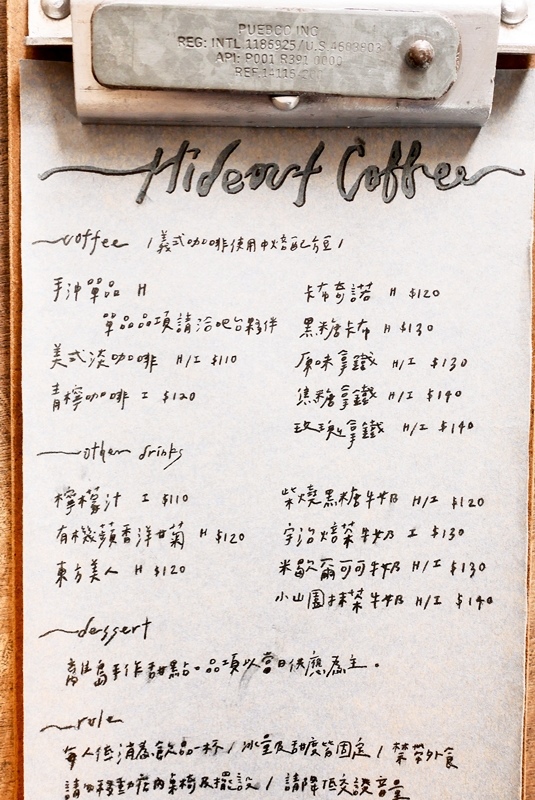 PUEBCO INC
REG: INTL 1186925/U.S 4603803
API: P001 R391 0000
REF.14115
Hideout Coffee
coffee /義式咖啡使用中焙配方豆/
手沖單品 H
單品品項請洽吧台夥伴
美式淡咖啡 H/I $110
青檸咖啡 I $120
卡布奇諾 H $120
黑糖卡布 H $130
原味拿鐵 H/I $130
焦糖拿鐵 H/I $140
玫瑰拿鐵 H/I $140
other drinks
檸檬汁 I $110
有機蘋香洋甘菊 H $120
東方美人 H $120
柴燒黑糖牛奶 H/I $120
宇治焙茶牛奶 I $130
米歇爾可可牛奶 H/I $130
小山園抹茶牛奶 H/I $140
dessert
離島手作甜點。品項以當日供應為主。
rule
每人低消為飲品一杯 / 冰量及甜度皆固定 / 禁帶外食
請勿移動店內桌椅及擺設 / 請降低交談音量